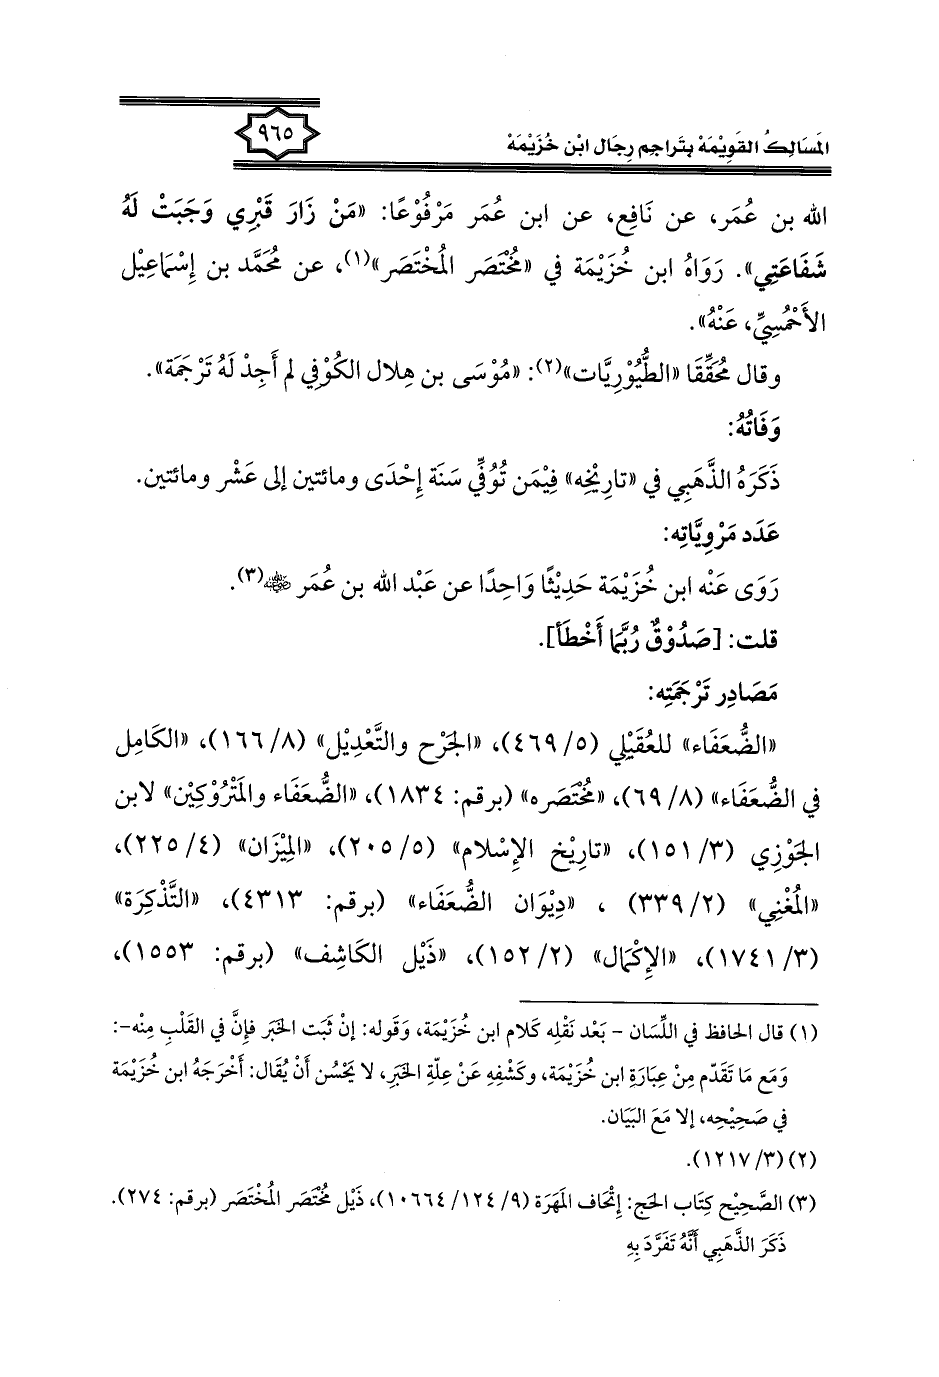 المَسَالِكُ القَوِيْمَةْ بِتَراجِم رِجَال ابْن خُزَيْمَةْ
٩٦٥
الله بن عُمَر، عن نَافِع، عن ابن عُمَر مَرْفُوْعًا: «مَنْ زَارَ قَبْرِي وَجَبَتْ لَهُ
شَفَاعَتِي». رَوَاهُ ابن خُزَيْمَة في «مُخْتَصَر المُخْتَصَر»(١)، عن مُحَمَّد بن إِسْمَاعِيْل
الأَحْمُسِيِّ، عَنْهُ».
وقال مُحَقِّقَا «الطُّيُوْرِيَّات»(٢): «مُوْسَى بن هِلال الكُوْفِي لم أَجِدْ لَهُ تَرْجَمَة».
وَفَاتُهُ:
ذَكَرَهُ الذَّهَبِي في «تارِيْخِه» فِيْمَن تُوُفِّي سَنَة إِحْدَى ومائتين إلى عَشْر ومائتين.
عَدَد مَرْوِيَّاتِه:
رَوَى عَنْه ابن خُزَيْمَة حَدِيْثًا وَاحِدًا عن عَبْد الله بن عُمَر ﵁(٣).
قلت: [صَدُوْقٌ رُبَّمَا أَخْطَأ].
مَصَادِر تَرْجَمَتِه:
«الضُّعَفَاء» للعُقَيْلي (٥/ ٤٦٩)، «الجَرْح والتَّعْدِيْل» (٨/ ١٦٦)، «الكَامِل
في الضُّعَفَاء» (٨/ ٦٩)، «مُخْتَصَره» (برقم: ١٨٣٤)، «الضُّعَفَاء والمَتْرُوْكِيْن» لابن
الجَوْزِي (٣/ ١٥١)، «تارِيْخ الإِسْلام» (٥/ ٢٠٥)، «المِيْزَان» (٤/ ٢٢٥)،
«المُغْنِي» (٢/ ٣٣٩) ، «دِيْوَان الضُّعَفَاء» (برقم: ٤٣١٣)، «التَّذْكِرَة»
(٣/ ١٧٤١)، «الإِكْمَال» (٢/ ١٥٢)، «ذَيْل الكَاشِف» (برقم: ١٥٥٣)،
(١) قال الحافظ في اللِّسَان - بَعْد نَقْلِه كَلام ابن خُزَيْمَة، وَقَوله: إِنْ ثَبَت الخَبَر فإِنَّ في القَلْبِ مِنْه-:
وَمَع مَا تَقَدّم مِنْ عِبَارَةِ ابن خُزَيْمَة، وكَشْفِهِ عَنْ عِلّةِ الخَبَرِ، لا يَحْسُن أَنْ يُقَال: أَخْرَجَهُ ابن خُزَيْمَة
في صَحِيْحِه، إلا مَعَ البَيَان.
(٢) (٣/ ١٢١٧).
(٣) الصَّحِيْح كِتَاب الحَج: إِتْحَاف المَهَرَة (٩/ ١٢٤/ ١٠٦٦٤)، ذَيْل مُخْتَصَر المُخْتَصَر (برقم: ٢٧٤).
ذَكَرَ الذَّهَبِي أَنَّهُ تَفَرَّدَ بِهِ